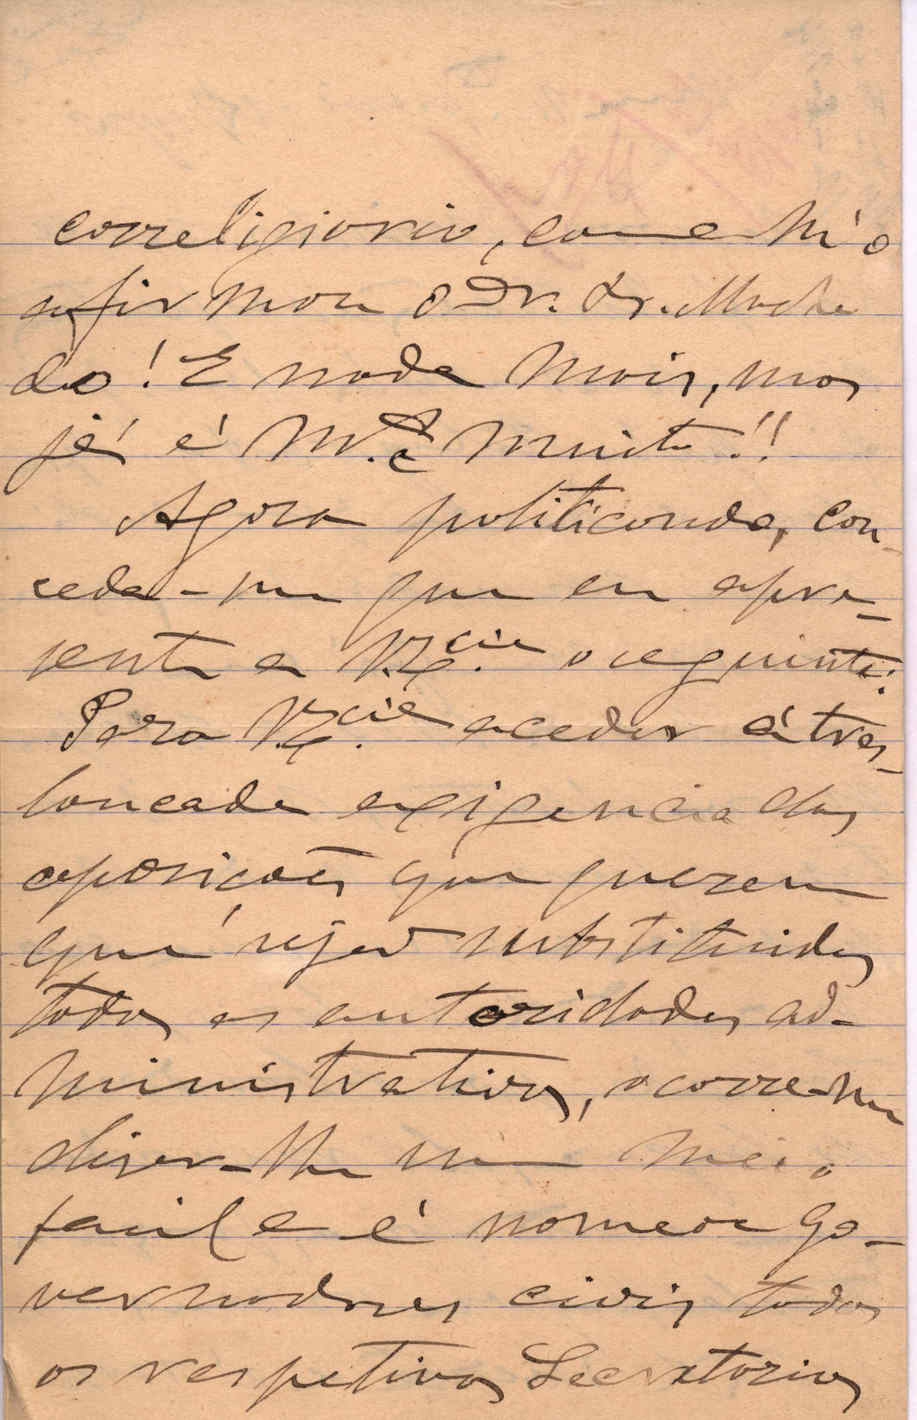 correligionario, como m'o
afirmou o Dr. Dr. Macha
do! E nada mais, mas
já é m.to muito!!
Agora politicando, con-
ceda-me que eu apre-
sente a V. Ex.cia o seguinte:
Para V. Ex.cia aceder á tres-
loucada exigencia das
oposições que querem
que sejão substituidas
todas as autoridades ad-
ministrativas, ocorre-me
dizer-lhe um meio
facil e é nomear Go-
vernadores civis todos
os respetivos Secretarios